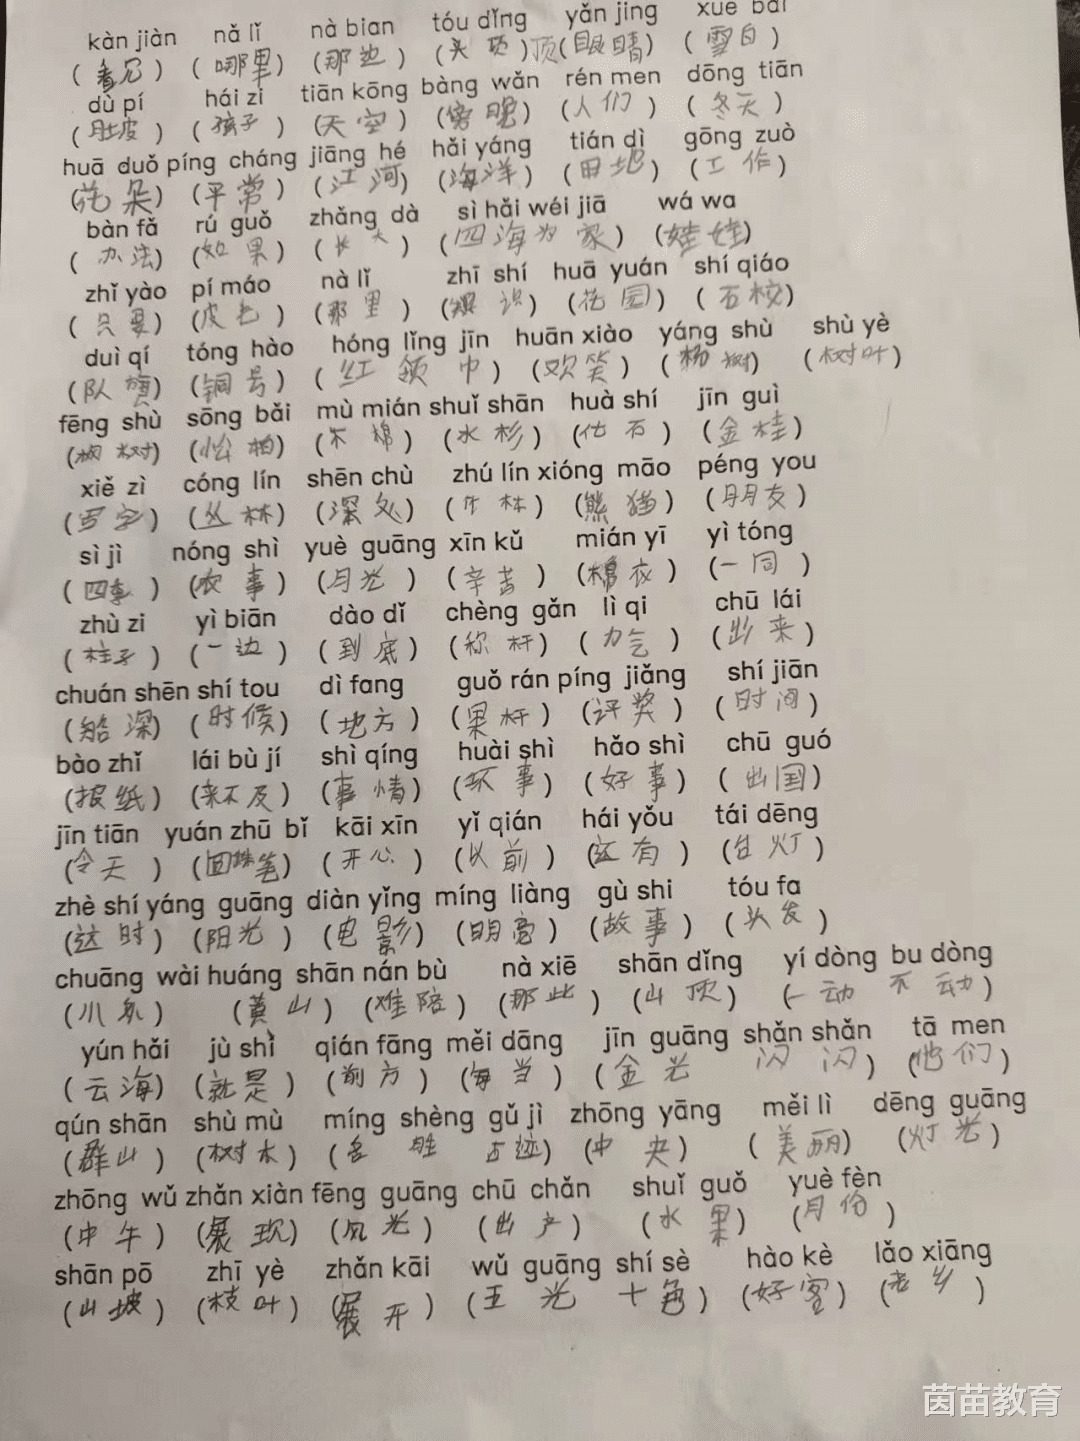 kàn jiàn nǎ lǐ nà bian tóu dǐng yǎn jing xuě bái
(看见) (哪里) (那边) (头顶) 顶 (眼睛) (雪白)
dù pí hái zi tiān kōng bàng wǎn rén men dōng tiān
(肚皮) (孩子) (天空) (傍晚) (人们) (冬天)
huā duǒ píng cháng jiāng hé hǎi yáng tián dì gōng zuò
(花朵) (平常) (江河) (海洋) (田地) (工作)
bàn fǎ rú guǒ zhǎng dà sì hǎi wéi jiā wá wa
(办法) (如果) (长大) (四海为家) (娃娃)
zhǐ yào pí máo nà lǐ zhī shí huā yuán shí qiáo
(只要) (皮毛) (那里) (识) (花园) (石校)
duì qí tóng hào hóng lǐng jīn huān xiào yáng shù shù yè
(队旗) (铜号) (红领巾) (欢笑) (杨树) (树叶)
fēng shù sōng bǎi mù mián shuǐ shān huà shí jīn guì
(枫树) (松柏) (木棉) (水杉) (化石) (金桂)
xiě zì cóng lín shēn chù zhú lín xióng māo péng you
(写字) (丛林) (深处) (竹林) (熊猫) (朋友)
sì jì nóng shì yuè guāng xīn kǔ mián yī yì tóng
(四季) (农事) (月光) (辛苦) (棉衣) (一同)
zhù zi yì biān dào dǐ chèng gǎn lì qi chū lái
(柱子) (一边) (到底) (称杆) (力气) (出来)
chuán shēn shí tou dì fang guǒ rán píng jiǎng shí jiān
(船深) (时候) (地方) (果杆) (评奖) (时间)
bào zhǐ lái bù jí shì qíng huài shì hǎo shì chū guó
(报纸) (来不及) (事情) (坏事) (好事) (出国)
jīn tiān yuán zhū bǐ kāi xīn yǐ qián hái yǒu tái dēng
(今天) (圆珠笔) (开心) (以前) (还有) (台灯)
zhè shí yáng guāng diàn yǐng míng liàng gù shi tóu fa
(这时) (阳光) (电影) (明亮) (故事) (头发)
chuāng wài huáng shān nán bù nà xiē shān dǐng yí dòng bu dòng
(外) (黄山) (难陪) (那些) (山顶) (一动不动)
yún hǎi jù shì qián fāng měi dāng jīn guāng shǎn shǎn tā men
(云海) (就是) (前方) (每当) (金光闪闪) (他们)
qún shān shù mù míng shèng gǔ jì zhōng yāng měi lì dēng guāng
(群山) (树木) (名胜古迹) (中央) (美丽) (灯光)
zhōng wǔ zhǎn xiàn fēng guāng chū chǎn shuǐ guǒ yuè fèn
(中午) (展现) (风光) (出产) (水果) (月份)
shān pō zhī yè zhǎn kāi wǔ guāng shí sè hào kè lǎo xiāng
(山坡) (枝叶) (展开) (五光十色) (好客) (老乡)
茵苗教育